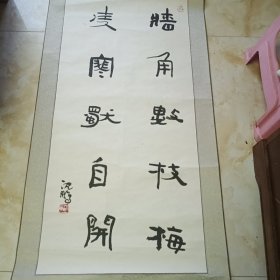 牆角數枝梅
凌寒獨自開
沈鵬